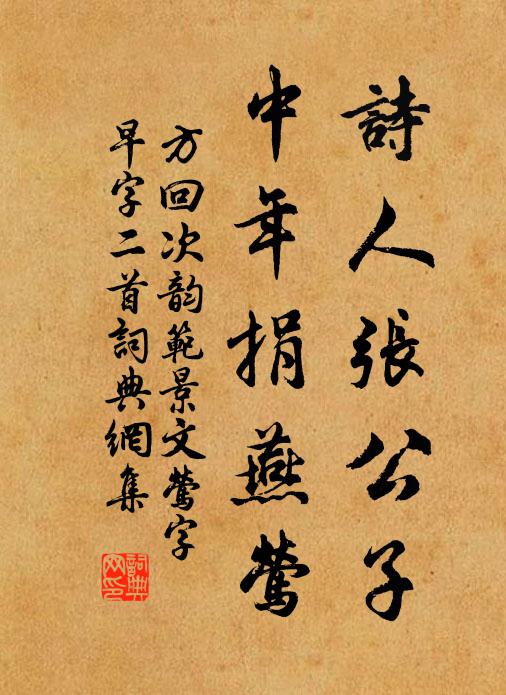 詩人張公子
中年捐燕鶯
方回次韵範景文鶯字
早字二首詞典網集
詞典
网印